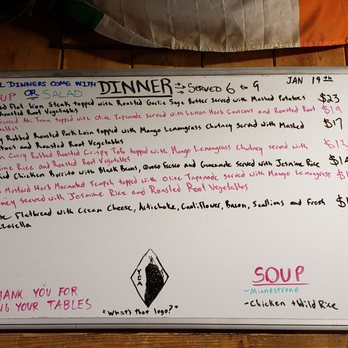 DINNERS COME WITH DINNER SERVED 6 to 9 JAN 19TH
OR SALAD
Steak topped with Roasted Garlic Sage Butter served with Mashed Potatoes $23
Roasted Root Vegetables
topped with Olive Tapenade served with Lemon Herb Couscous and Roast
Root Vegetables
Rubbed Roasted Pork Loin topped with Mango Lemongrass Chutney served with Mashed $17
and Roasted Root Vegetables
Curry Rubbed Roasted Crispy Tofu topped with Mango Lemongrass Chutney served with
Rice and Roasted Root Vegetables
Chicken Burrito with Black Beans, Queso Fresco and Guacamole served with Jasmine Rice
Herb Marinated Tempeh topped with Olive Tapenade served with Mango Lemongrass
served with Jasmine Rice and Roasted Root Vegetables
Flatbread with Cream Cheese, Artichoke, Cauliflower, Bacon, Scallions and Fresh
YOU FOR
YOUR TABLES
"What's that logo?"
SOUP
-Minnestrone
-Chicken + Wild Rice